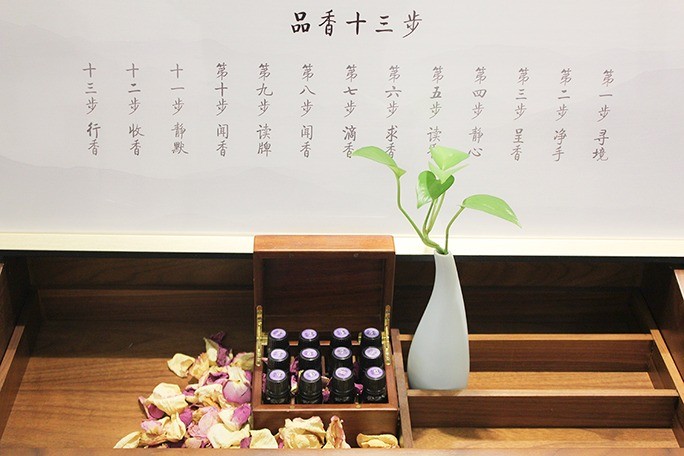 品香十三步
第一步 寻境
第二步 净手
第三步 呈香
第四步 静心
第五步 读
第六步 求香
第七步 滴香
第八步 闻香
第九步 读牌
第十步 闻香
十一步 静默
十二步 收香
十三步 行香